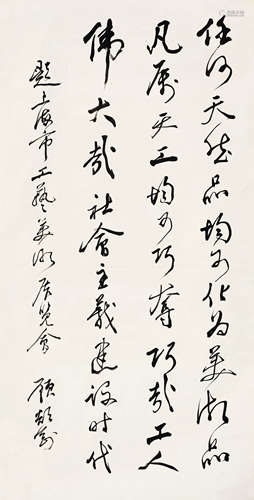 任何天然品均可化为美术品
凡属天工均可巧夺巧哉工人
伟大哉社会主义建设时代
题上海市工艺美术展览会 顾